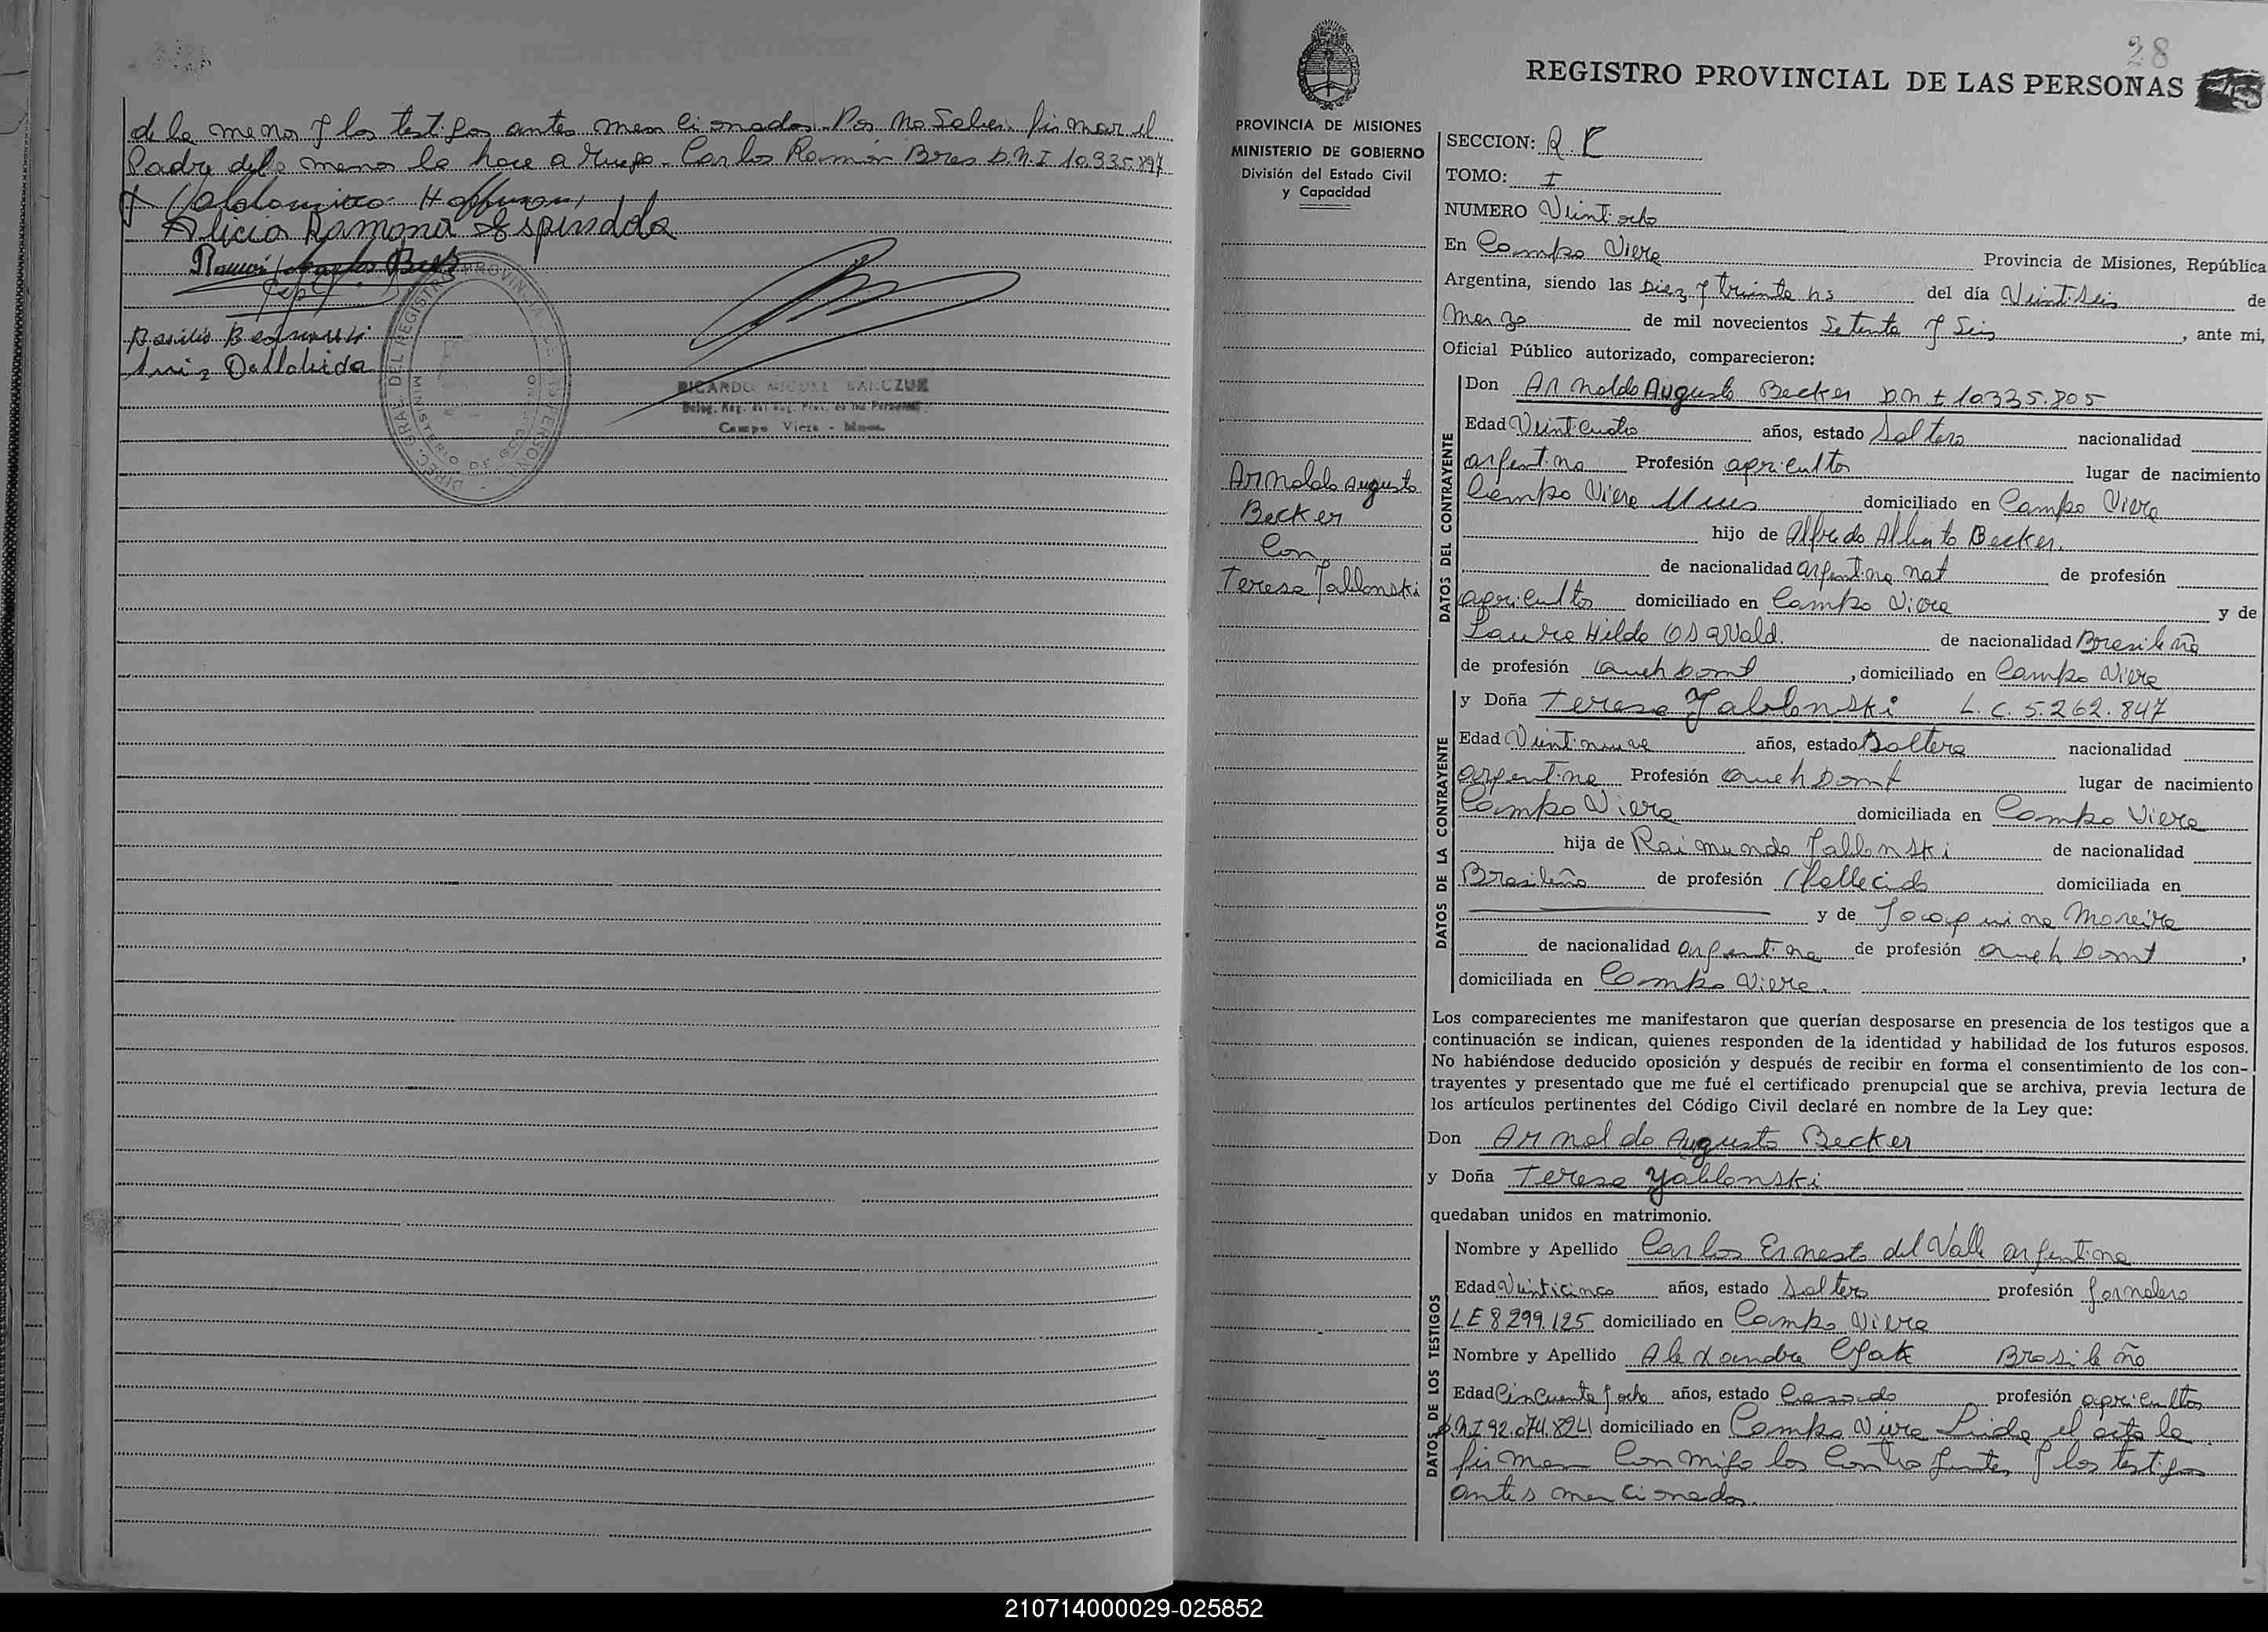 de la menor y los testigos antes mencionados. Por no saber firmar el
Padre de la menor lo hace a ruego. Carlos Ramón Bres D.N.I 10.335.897
Alicia Ramona Espindola
Luiz Dallabida
DIREC. GRAL. DEL REGISTRO PROVINCIAL DE LAS PERSONAS
MINISTERIO DE GOBIERNO
RICARDO MIGUEL BARCZUK
Deleg. Reg. del Reg. Prov. de las Personas
Campo Viera - Mnes.
28
REGISTRO PROVINCIAL DE LAS PERSONAS
PROVINCIA DE MISIONES
MINISTERIO DE GOBIERNO
División del Estado Civil
y Capacidad
Arnoldo Augusto
Becker
Con
Teresa Jablonski
SECCION: R.C
TOMO: I
NUMERO Veintiocho
En Campo Viera Provincia de Misiones, República
Argentina, siendo las Diez y treinta hs del día Veintiseis de
Marzo de mil novecientos Setenta y Seis, ante mi,
Oficial Público autorizado, comparecieron:
DATOS DEL CONTRAYENTE
Don Arnoldo Augusto Becker D.N.I 10.335.805
Edad Veinticuatro años, estado Soltero nacionalidad
argentina Profesión agricultor lugar de nacimiento
Campo Viera Mnes domiciliado en Campo Viera
hijo de Alfredo Alberto Becker.
de nacionalidad argentina nat de profesión
agricultor domiciliado en Campo Viera y de
Laura Hilda Oswald. de nacionalidad Brasileña
de profesión queh Domt, domiciliado en Campo Viera
DATOS DE LA CONTRAYENTE
y Doña Teresa Yablonski L.C. 5.262.847
Edad Veintinueve años, estado Soltera nacionalidad
argentina Profesión queh Domt lugar de nacimiento
Campo Viera domiciliada en Campo Viera
hija de Raimundo Jablonski de nacionalidad
Brasileño de profesión (fallecido domiciliada en
y de Joaquina Moreira
de nacionalidad argentina de profesión queh Domt,
domiciliada en Campo Viera.
Los comparecientes me manifestaron que querían desposarse en presencia de los testigos que a
continuación se indican, quienes responden de la identidad y habilidad de los futuros esposos.
No habiéndose deducido oposición y después de recibir en forma el consentimiento de los con-
trayentes y presentado que me fué el certificado prenupcial que se archiva, previa lectura de
los artículos pertinentes del Código Civil declaré en nombre de la Ley que:
Don Arnoldo Augusto Becker
y Doña Teresa Yablonski
quedaban unidos en matrimonio.
DATOS DE LOS TESTIGOS
Nombre y Apellido Carlos Ernesto del Valle argentino
Edad Veinticinco años, estado Soltero profesión Jornalero
LE 8.299.125 domiciliado en Campo Viera
Nombre y Apellido Alexandre Brasileño
Edad Cincuenta y ocho años, estado Casado profesión agricultor
D.N.I 92.074.824 domiciliado en Campo Viera Leida el acta la
firman Conmigo los Contrayentes y los testigos
antes mencionados.
210714000029-025852